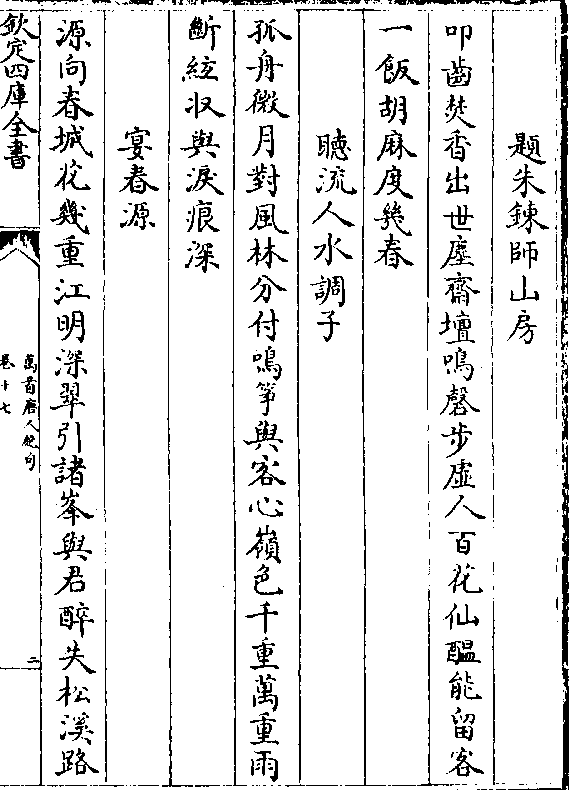 題朱錬師山房
叩齒焚香出世塵齋壇鳴磬步虛人百花仙醖能留客
一飯胡麻度幾春
聽流人水調子
孤舟微月對風林分付鳴箏與客心嶺色千重萬重雨
斷絃収與淚痕深
宴春源
源向春城花幾重江明深翠引諸峯與君醉失松溪路
欽定四庫全書
萬首唐人絶句
卷十七
二